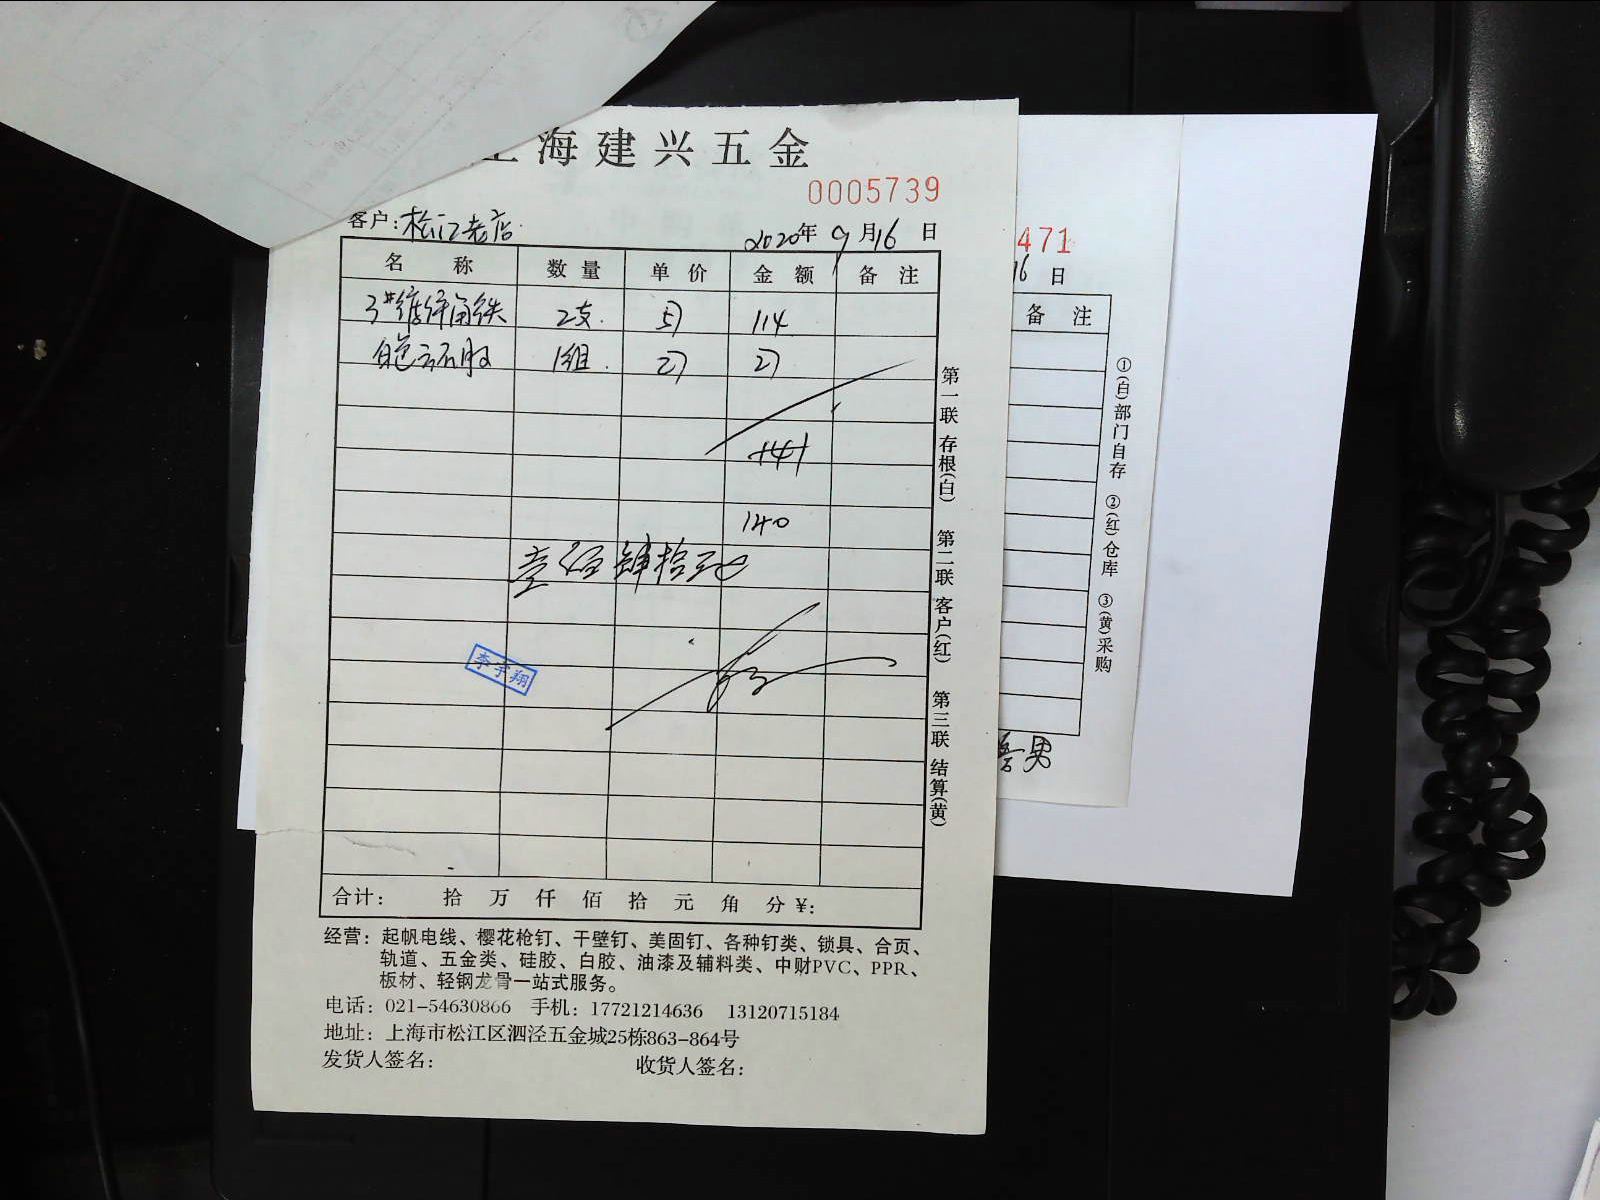 上海建兴五金
0005739
客户: 松江老店
2020年 9月16日
名 称 数 量 单 价 金 额 备 注
3#镀锌角铁 2支. 57 114
白色云石胶 1组. 27 27
141
140
壹佰肆拾元
李宇翔
合计: 拾 万 仟 佰 拾 元 角 分 ¥:
经营: 起帆电线、樱花枪钉、干壁钉、美固钉、各种钉类、锁具、合页、
轨道、五金类、硅胶、白胶、油漆及辅料类、中财PVC、PPR、
板材、轻钢龙骨一站式服务。
电话: 021-54630866 手机: 17721214636 13120715184
地址: 上海市松江区泗泾五金城25栋863-864号
发货人签名: 收货人签名:
第一联 存根(白) 第二联 客户(红) 第三联 结算(黄)
471
16 日
备 注
①(白)部门自存 ②(红)仓库 ③(黄)采购
男